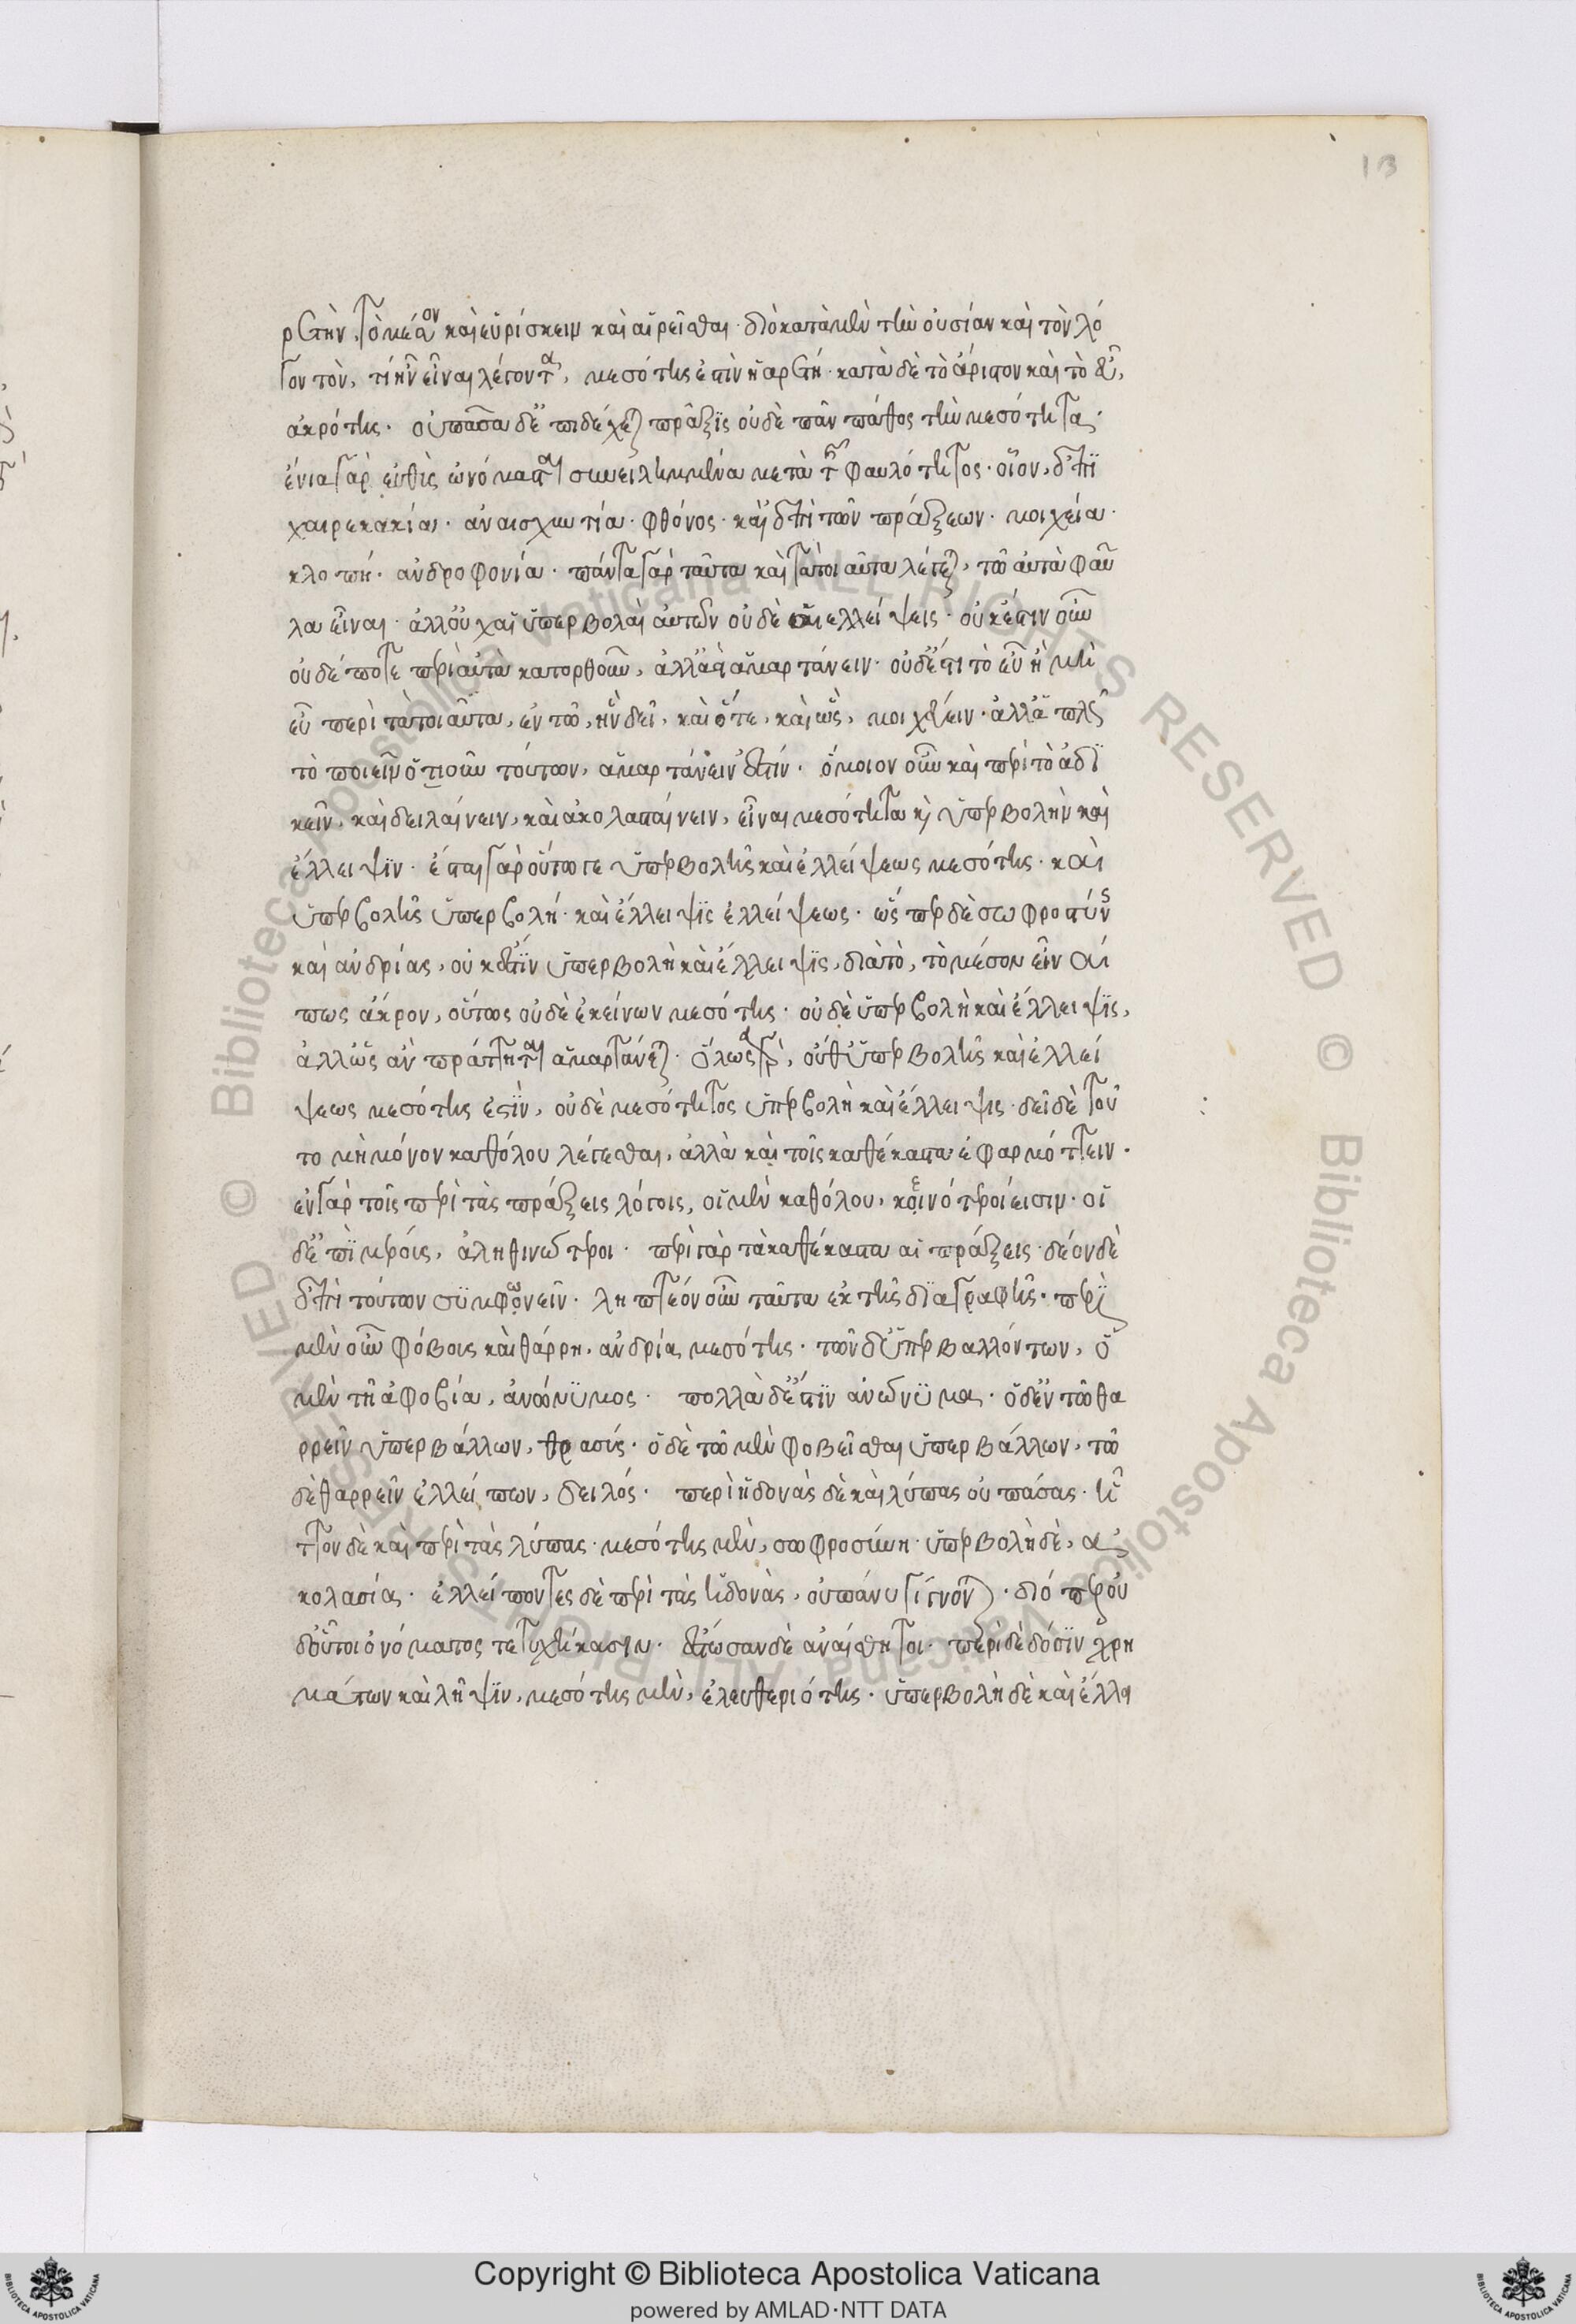 13
ρετὴν, τὸ μέσον καὶ εὑρίσκειν καὶ αἱρεῖσθαι· διὸ κατὰ μὲν τὴν οὐσίαν καὶ τὸν λό
γον τὸν, τί ἦν εἶναι λέγοντα, μεσότης ἐστὶν ἡ ἀρετή· κατὰ δὲ τὸ ἄριστον καὶ τὸ εὖ,
ἀκρότης· οὐ πᾶσα δ' ἐπιδέχεται πρᾶξις οὐδὲ πᾶν πάθος τὴν μεσότητα·
ἔνια γὰρ εὐθὺς ὠνόμασται συνειλημμένα μετὰ τῆς φαυλότητος· οἷον, ἐπὶ
χαιρεκακία· ἀναισχυντία· φθόνος· καὶ ἐπὶ τῶν πράξεων· μοιχεία·
κλοπή· ἀνδροφονία· πάντα γὰρ ταῦτα καὶ τὰ τοιαῦτα λέγεται, τῶ αὐτὰ φαῦ
λα εἶναι· ἀλλ' οὐχ αἱ ὑπερβολαὶ αὐτῶν οὐδὲ αἱ ἐλλείψεις· οὐκ ἔστιν οὖν
οὐδέποτε περὶ αὐτὰ κατορθοῦν, ἀλλ' ἀεὶ ἁμαρτάνειν· οὐδ' ἔστι τὸ εὖ ἢ μὴ
εὖ περὶ τὰ τοιαῦτα, ἐν τῶ, ἣν δεῖ, καὶ ὅτε, καὶ ὡς, μοιχεύειν· ἀλλ' ἁπλῶς
τὸ ποιεῖν ὁτιοῦν τούτων, ἁμαρτάνειν ἐστίν· ὅμοιον οὖν καὶ περὶ τὸ ἀδι
κεῖν, καὶ δειλαίνειν, καὶ ἀκολασταίνειν, εἶναι μεσότητα καὶ ὑπερβολὴν καὶ
ἔλλειψιν· ἔσται γὰρ οὕτω γε ὑπερβολῆς καὶ ἐλλείψεως μεσότης· καὶ
ὑπερβολῆς ὑπερβολή· καὶ ἔλλειψις ἐλλείψεως· ὥσπερ δὲ σωφροσύνης
καὶ ἀνδρίας, οὐκ ἔστιν ὑπερβολὴ καὶ ἔλλειψις, διὰ τὸ, τὸ μέσον εἶναί
πως ἄκρον, οὕτως οὐδὲ ἐκείνων μεσότης· οὐδὲ ὑπερβολὴ καὶ ἔλλειψις,
ἀλλ' ὡς ἂν πράττηται ἁμαρτάνεται· ὅλως γὰρ, οὔθ' ὑπερβολῆς καὶ ἐλλεί
ψεως μεσότης ἐστὶν, οὐδὲ μεσότητος ὑπερβολὴ καὶ ἔλλειψις· δεῖ δὲ τοῦ
το μὴ μόνον καθόλου λέγεσθαι, ἀλλὰ καὶ τοῖς καθέκαστα ἐφαρμόττειν·
ἐν γὰρ τοῖς περὶ τὰς πράξεις λόγοις, οἱ μὲν καθόλου, κοινότεροί εἰσιν· οἱ
δ' ἐπὶ μέρους, ἀληθινώτεροι· περὶ γὰρ τὰ καθέκαστα αἱ πράξεις· δέον δὲ
ἐπὶ τούτων συμφωνεῖν· ληπτέον οὖν ταῦτα ἐκ τῆς διαγραφῆς· περὶ
μὲν οὖν φόβους καὶ θάρρη, ἀνδρία μεσότης· τῶν δ' ὑπερβαλλόντων, ὁ
μὲν τῆ ἀφοβία, ἀνώνυμος· πολλὰ δ' ἐστὶν ἀνώνυμα· ὁ δ' ἐν τῶ θα
ρρεῖν ὑπερβάλλων, θρασύς· ὁ δὲ τῶ μὲν φοβεῖσθαι ὑπερβάλλων, τῶ
δὲ θαρρεῖν ἐλλείπων, δειλός· περὶ ἡδονὰς δὲ καὶ λύπας οὐ πάσας· ἧ
ττον δὲ καὶ περὶ τὰς λύπας· μεσότης μὲν, σωφροσύνη· ὑπερβολὴ δὲ, ἀ
κολασία· ἐλλείποντες δὲ περὶ τὰς ἡδονὰς, οὐ πάνυ γίγνονται· διόπερ οὐ
δ' οὗτοι ὀνόματος τετυχήκασιν· ἔστωσαν δὲ ἀναίσθητοι· περὶ δὲ δόσιν χρη
μάτων καὶ λῆψιν, μεσότης μὲν, ἐλευθεριότης· ὑπερβολὴ δὲ καὶ ἔλλει
Copyright © Biblioteca Apostolica Vaticana
powered by AMLAD·NTT DATA